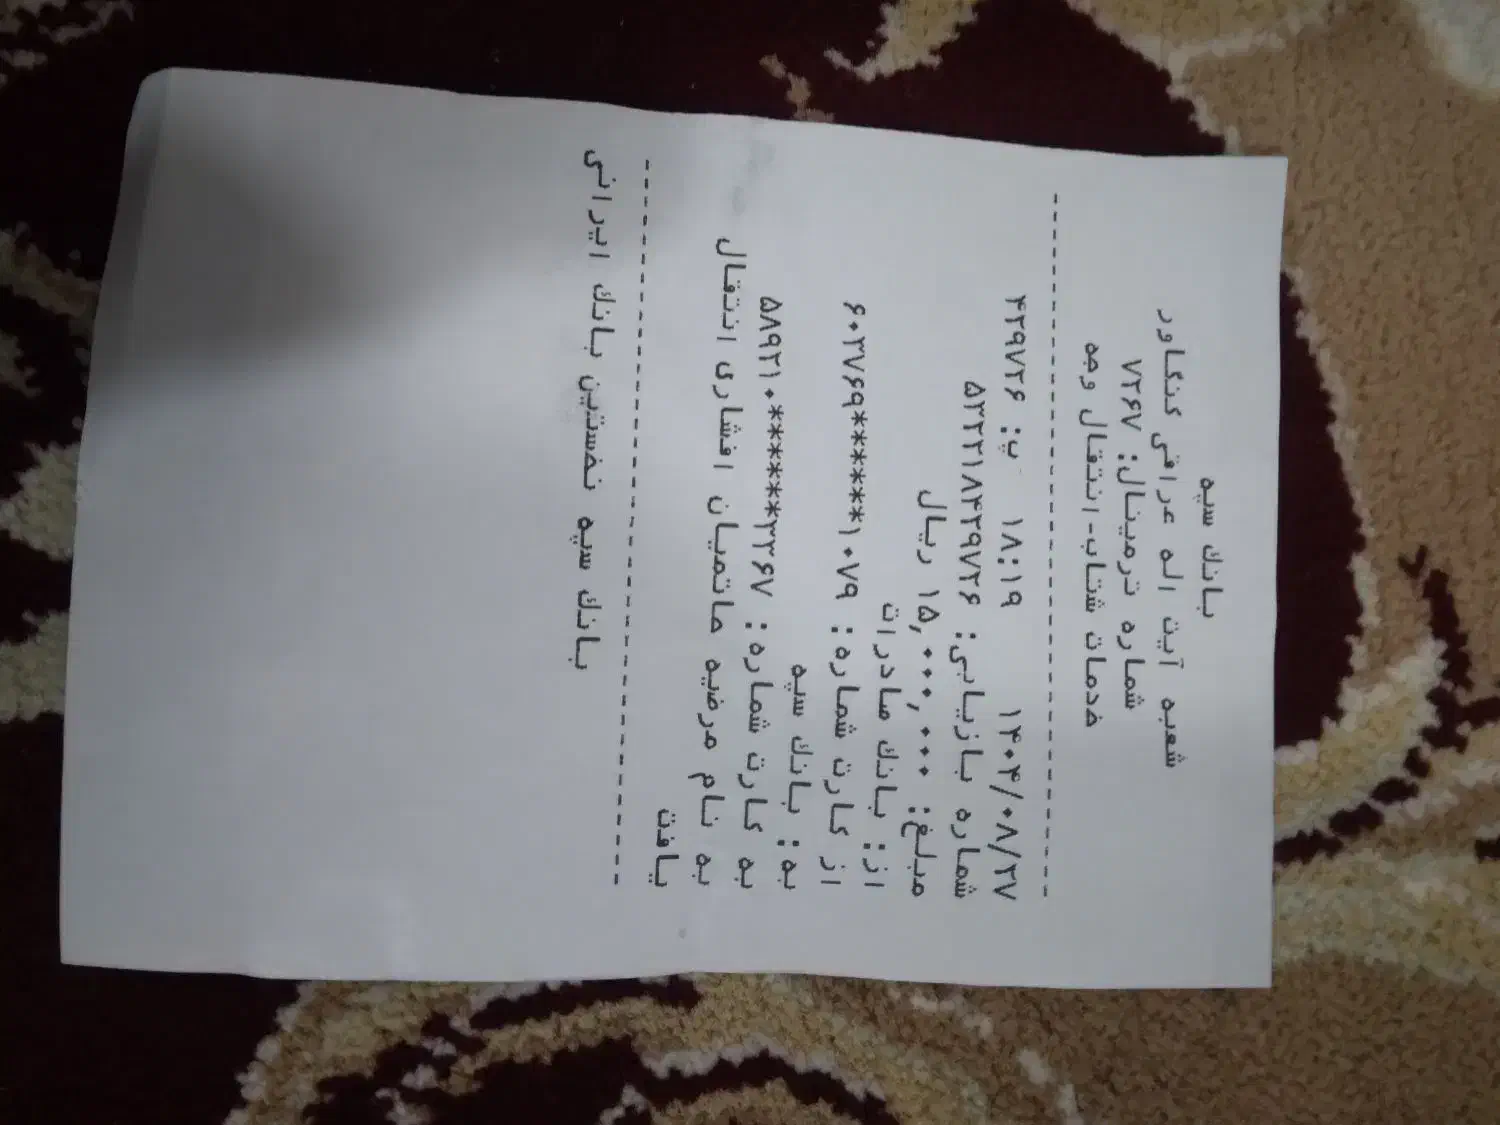 بانك سپه
شعبه آيت اله عراقي كنگاور
شماره ترمينال: ۷۲۶۷
خدمات شتاب-انتقال وجه
۱۴۰۴/۰۸/۲۷ ۱۸:۱۹ پ: ۴۲۹۷۲۶
شماره بازيابي: ۵۳۲۲۱۸۴۲۹۷۲۶
مبلغ: ۱۵,۰۰۰,۰۰۰ ريال
از: بانك صادرات
از كارت شماره: ۶۰۳۷۶۹******۱۰۷۹
به: بانك سپه
به كارت شماره: ۵۸۹۲۱۰******۲۲۶۷
به نام مرضيه حاتميان افشاري انتقال
يافت
بانك سپه نخستين بانك ايراني